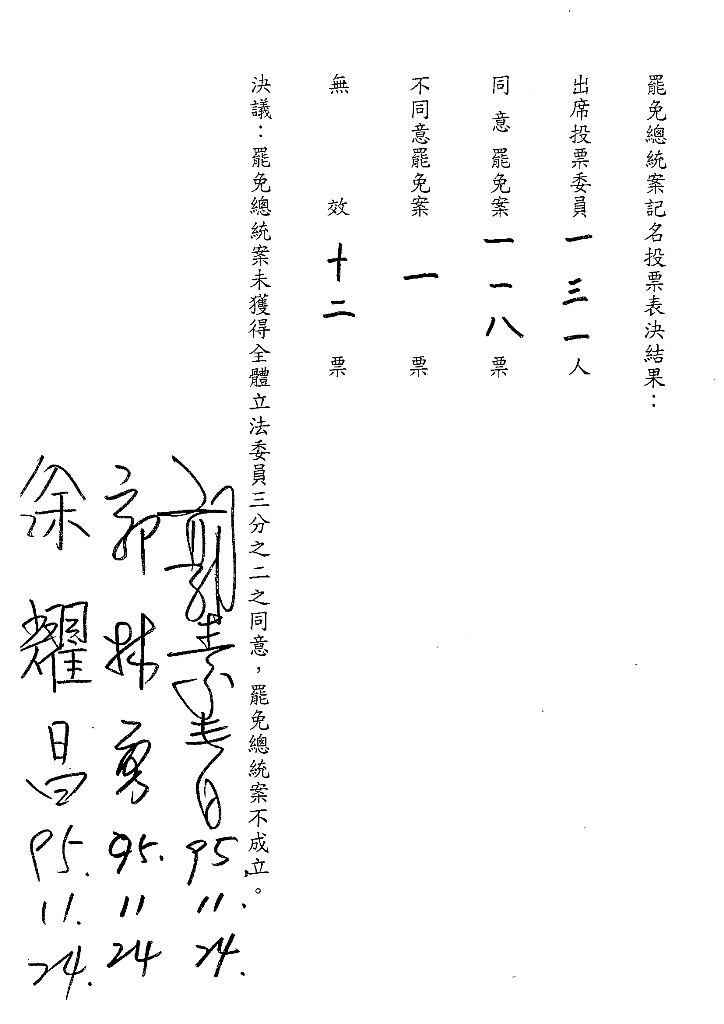 罷免總統案記名投票表決結果：
出席投票委員一三一人
同意罷免案一一八票
不同意罷免案一票
無效十二票
決議：罷免總統案未獲得全體立法委員三分之二之同意，罷免總統案不成立。
郭素春 95.11.24.
郭林勇 95.11 24
徐耀昌 95.11.24.